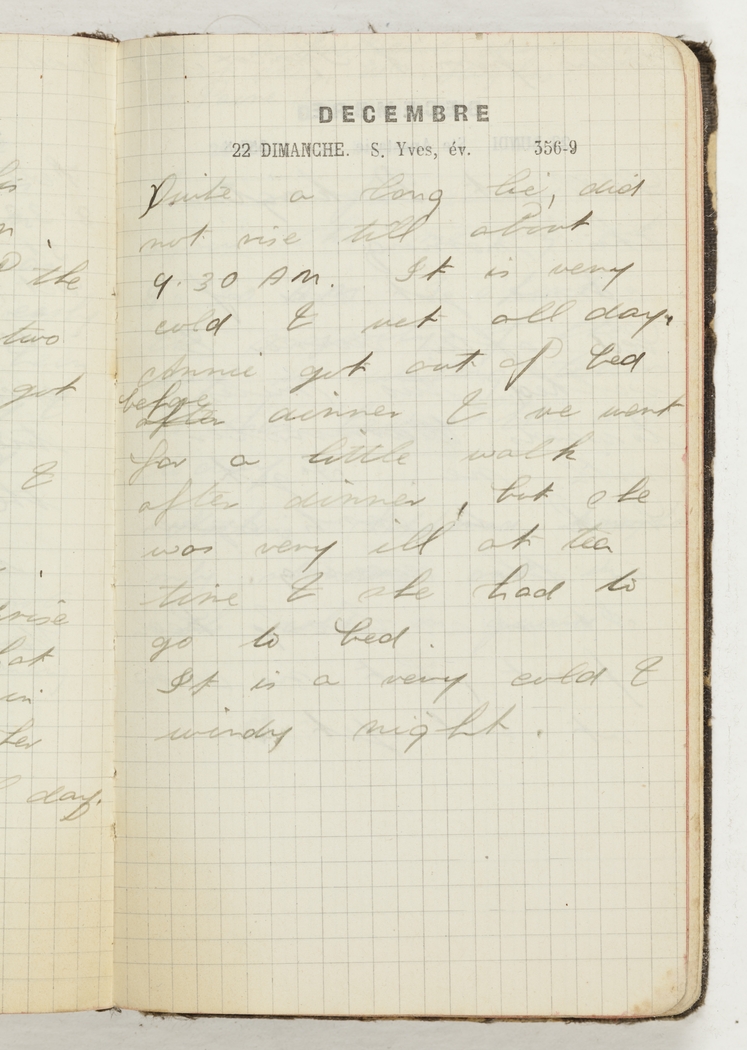 is
n.
the
two
got
&
rise
hat
in
ter
day.
DECEMBRE
22 DIMANCHE. S. Yves, év. 356-9
Quite a long lie, did
not rise till about
9.30 AM. It is very
cold & wet all day.
Annie got out of bed
before
after dinner & we went
for a little walk
after dinner, but she
was very ill at tea
time & she had to
go to bed.
It is a very cold &
windy night.